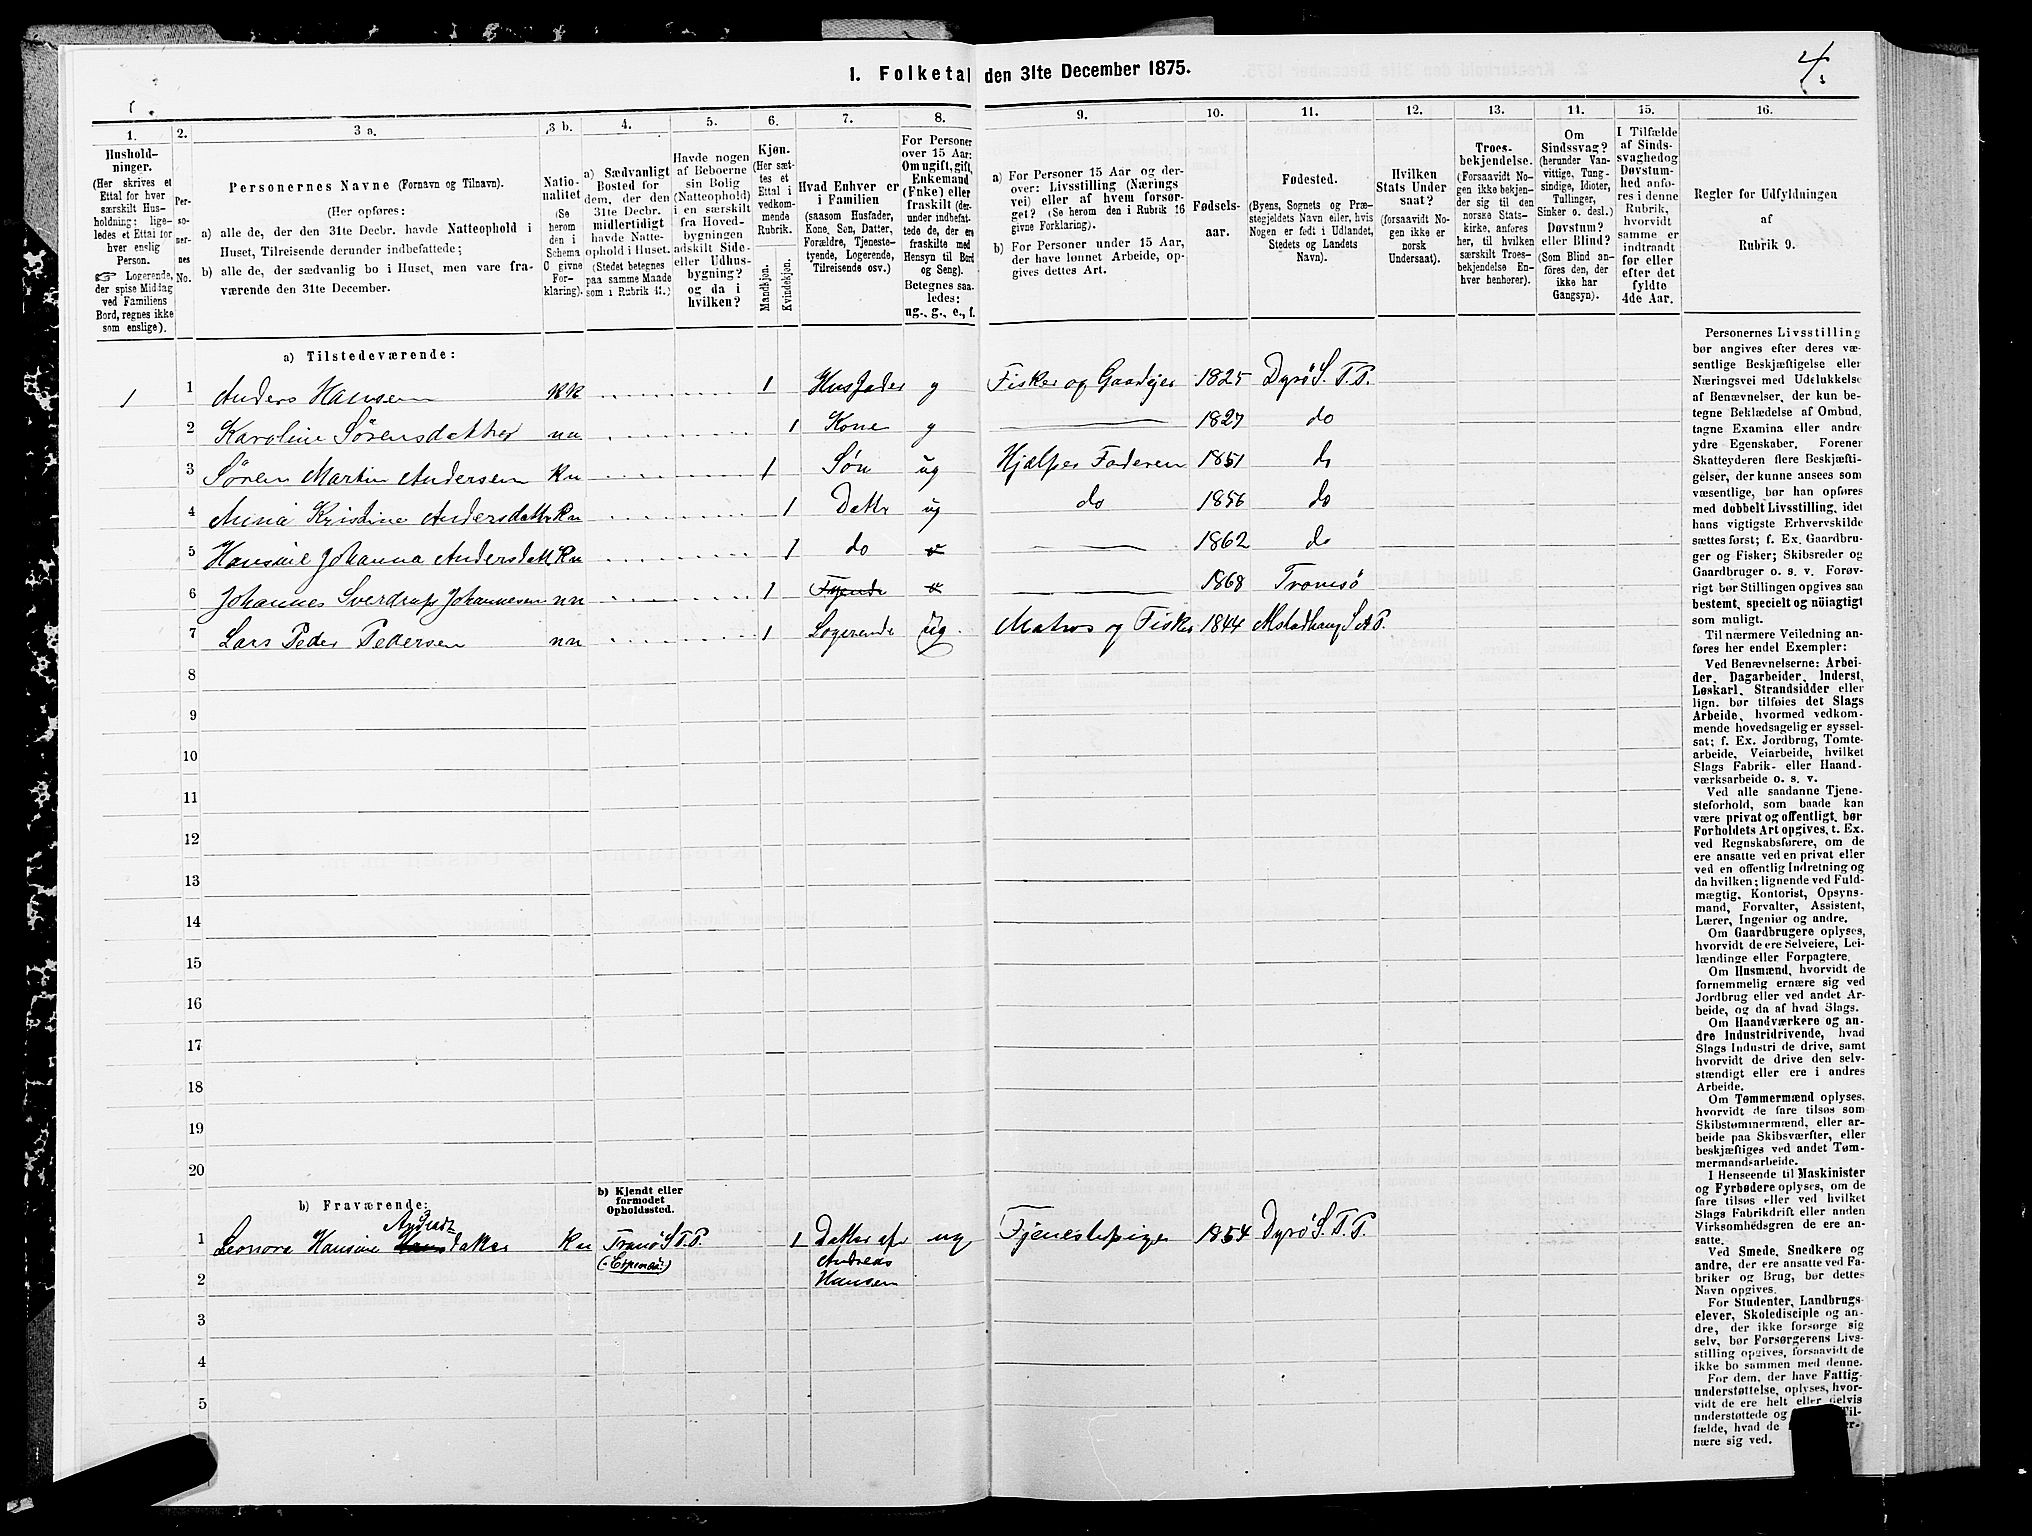 1. Folketal den 31te December 1875.
4.
1.
1. 2. 3 a. 3 b. 4. 5. 6. 7. 8. 9. 10. 11. 12. 13. 14. 15. 16.
Hushold-
ninger.
(Her skrives et
Ettal for hver
særskilt Hus-
holdning; lige-
ledes et Ettal for
hver enslig
Person.
☞ Logerende,
der spise Middag
ved Familiens
Bord, regnes ikke
som enslige).
Per-
so-
ner-
nes
No.
Personernes Navne (Fornavn og Tilnavn).
(Her opføres:
a) alle de, der den 31te Decbr. havde Natteophold i
Huset, Tilreisende derunder indbefattede;
b) alle de, der sædvanlig bo i Huset, men vare fra-
værende den 31te December.
Natio-
nalitet
(Se
herom
den i
Schema
0 givne
For-
klaring).
a) Sædvanligt
Bosted for
dem, der den
31te Decbr.
midlertidigt
havde Natte-
ophold i Huset.
(Stedet betegnes
paa samme Maade
som i Rubrik 11.)
Havde nogen
af Beboerne
sin Bolig
(Natteophold)
i en særskilt
fra Hoved-
bygningen
adskilt Side-
eller Udhus-
bygning?
og da i
hvilken?
Kjøn.
(Her sæt-
tes et
Ettal i
vedkom-
mende
Rubrik.
Mandkjøn.
Kvindekjøn.
Hvad Enhver er
i Familien
(saasom Husfader,
Kone, Søn, Datter,
Forældre, Tjeneste-
tyende, Logerende,
Tilreisende osv.)
For Personer
over 15 Aar:
Om ugift, gift,
Enkemand
(Enke) eller
fraskilt (der-
under indbefat-
tede de, der ere
fraskilte med
Hensyn til Bord
og Seng).
Betegnes saa-
ledes:
ug., g., e., f.
a) For Personer 15 Aar og der-
over: Livsstilling (Nærings
vei) eller af hvem forsør-
get? (Se herom den i Rubrik 16
givne Forklaring).
b) For Personer under 15 Aar,
der have lønnet Arbeide, op-
gives dettes Art.
Fødsels-
aar.
Fødested.
(Byens, Sognets og Præ-
stegjeldets Navn eller, hvis
Nogen er født i Udlandet,
Stedets og Landets
Navn).
Hvilken
Stats Under
saat?
(forsaavidt No-
gen ikke er
norsk
Undersaat).
Troes-
bekjendelse.
(Forsaavidt No-
gen ikke bekjen-
der sig til den
norske Stats-
kirke, anføres
her, til hvilken
særskilt Troes-
bekjendelse En-
hver henhører).
Om
Sindssvag?
(herunder Van-
vittige, Tung-
sindige, Idioter,
Tullinger,
Sinker o. desl.)
Døvstum?
eller Blind?
(Som Blind an-
føres den, der
ikke har
Gangsyn).
I Tilfælde
af Sinds-
svaghedog
Døvstum-
hed anfø-
res i denne
Rubrik,
hvorvidt
samme er
indtraadt
før eller
efter det
fyldte
4de Aar.
Regler for Udfyldningen
af
Rubrik 9.
a) Tilstedeværende:
1 1 Anders Hansen KK 1 Husfader g Fisker og Gaardejer 1825 Dyrø S. T. P.
2 Karoline Sørensdatter nn 1 Kone g 1827 do
3 Søren Martin Andersen Kn 1 Søn ug Hjælper Faderen 1851 do
4 Anna Kristine Andersdattr Kn 1 Dattr ug do 1856 do
5 Hansine Johanna Andersdatt. Kn 1 do 1862 do
6 Johannes Sverdrup Johannesen nn 1 Tyende 1868 Tromsø
7 Lars Peder Pedersen nn 1 Logerende ug. Matros og Fisker 1844 Alstadhaug S A P.
8
9
10
11
12
13
14
15
16
17
18
19
20
b) Fraværende:
b) Kjendt eller
formodet
Opholdssted.
1 Leonora Hansine datter Kn Tranø S T. P. 1 Datter af ug Tjenestepige 1854 Dyrø S. T. P.
Andreas
2 Hansen
3
4
5
Personernes Livsstilling
bør angives efter deres væ-
sentlige Beskjæftigelse eller
Næringsvei med Udelukkelse
af Benævnelser, der kun be-
tegne Beklædelse af Ombud,
tagne Examina eller andre
ydre Egenskaber. Forener
Skatteyderen flere Beskjæfti-
gelser, der kunne ansees som
væsentlige, bør han opføres
med dobbelt Livsstilling, idet
hans vigtigste Erhvervskilde
sættes først; f. Ex. Gaardbru-
ger og Fisker; Skibsreder og
Gaardbruger o. s. v. Forøv-
rigt bør Stillingen opgives saa
bestemt, specielt og nøiagtigt
som muligt.
Til nærmere Veiledning an-
føres her endel Exempler:
Ved Benævnelserne: Arbei-
der, Dagarbeider, Inderst,
Løskarl, Strandsidder eller
lign. bør tilføies det Slags
Arbeide, hvormed vedkom-
mende hovedsagelig er syssel-
sat; f. Ex. Jordbrug, Tomte-
arbeide, Veiarbeide, hvilket
Slags Fabrik- eller Haand-
værksarbeide o. s. v.
Ved alle saadanne Tjene-
steforhold, som baade kan
være privat og offentligt, bør
Forholdets Art opgives, t. Ex.
ved Regnskabsførere, om de
ere ansatte ved en privat eller
ved en offentlig Indretning og
da hvilken; lignende ved Fuld-
mægtig, Kontorist, Opsyns-
mand, Forvalter, Assistent,
Lærer, Ingeniør og andre.
Om Gaardbrugere oplyses,
hvorvidt de ere Selveiere, Lei-
lændinge eller Forpagtere.
Om Husmænd, hvorvidt de
fornemmelig ernære sig ved
Jordbrug eller ved andet Ar-
beide, og da af hvad Slags.
Om Haandværkere og an-
dre Industridrivende, hvad
Slags Industri de drive, samt
hvorvidt de drive den selv-
stændigt eller ere i andres
Arbeide.
Om Tømmermænd oplyses,
hvorvidt de fare tilsøs som
Skibstømmermænd, eller ar-
beide paa Skibsværfter, eller
beskjæftiges ved andet Tøm-
mermandsarbeide.
I Henseende til Maskinister
og Fyrbødere oplyses, om de
fare tilsøs eller ved hvilket
Slags Fabrikdrift eller anden
Virksomhedsgren de ere an-
satte.
Ved Smede, Snedkere og
andre, der ere ansatte ved Fa-
briker og Brug, bør dettes
Navn opgives.
For Studenter, Landbrugs-
elever, Skoledisciple og an-
dre, der ikke forsørge sig
selv, bør Forsørgerens Livs-
stilling opgives, forsaavidt de
ikke bo sammen med denne.
For dem, der have Fattig-
understøttelse, oplyses, hvor-
vidt de ere helt eller delvis
understøttede og Til-
fælde, hvad de er-
nære sig ved.